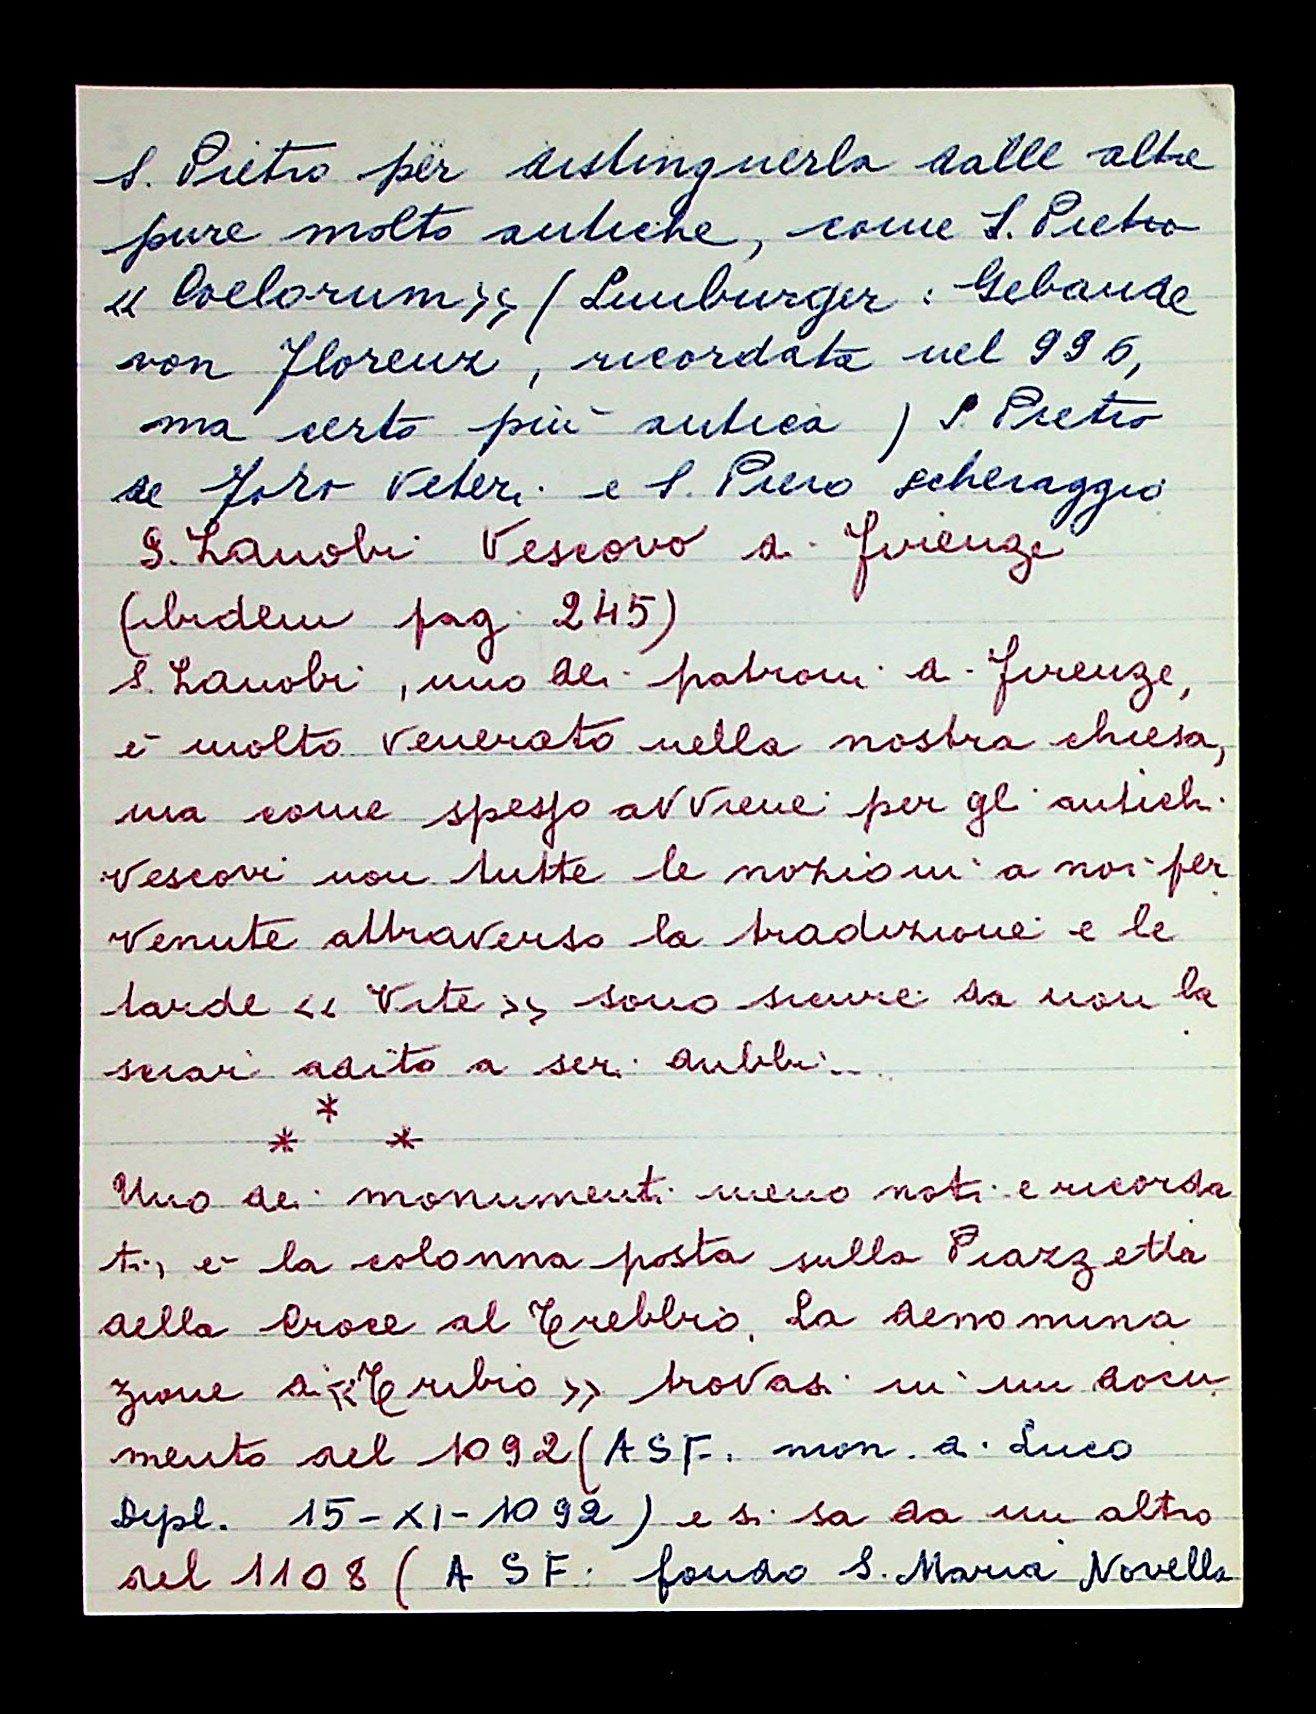 S. Pietro per distinguerla dalle altre
pure molto antiche, come S. Pietro
« Coelorum » ( Limburger : Gebaude
von Florenz , ricordata nel 996,
ma certo più antica ) S. Pietro
de Foro Veteri e S. Piero scheraggio
S. Zanobi Vescovo di Firenze
(ibidem pag. 245)
S. Zanobi , uno dei patroni di Firenze,
è molto venerato nella nostra chiesa,
ma come spesso avviene per gli antichi
vescovi non tutte le nozioni a noi per
venute attraverso la tradizione e le
tarde « Vite » sono sicure da non la
sciari adito a seri dubbi...
*
* *
Uno dei monumenti meno noti e ricorda
ti, è la colonna posta sulla Piazzetta
della Croce al Trebbio. La denomina
zione di « Trebio » trovasi in un docu
mento del 1092 ( ASF. mon. di Luco
Dipl. 15-XI-1092 ) e si sa da un altro
del 1108 ( A S F. fondo S. Maria Novella